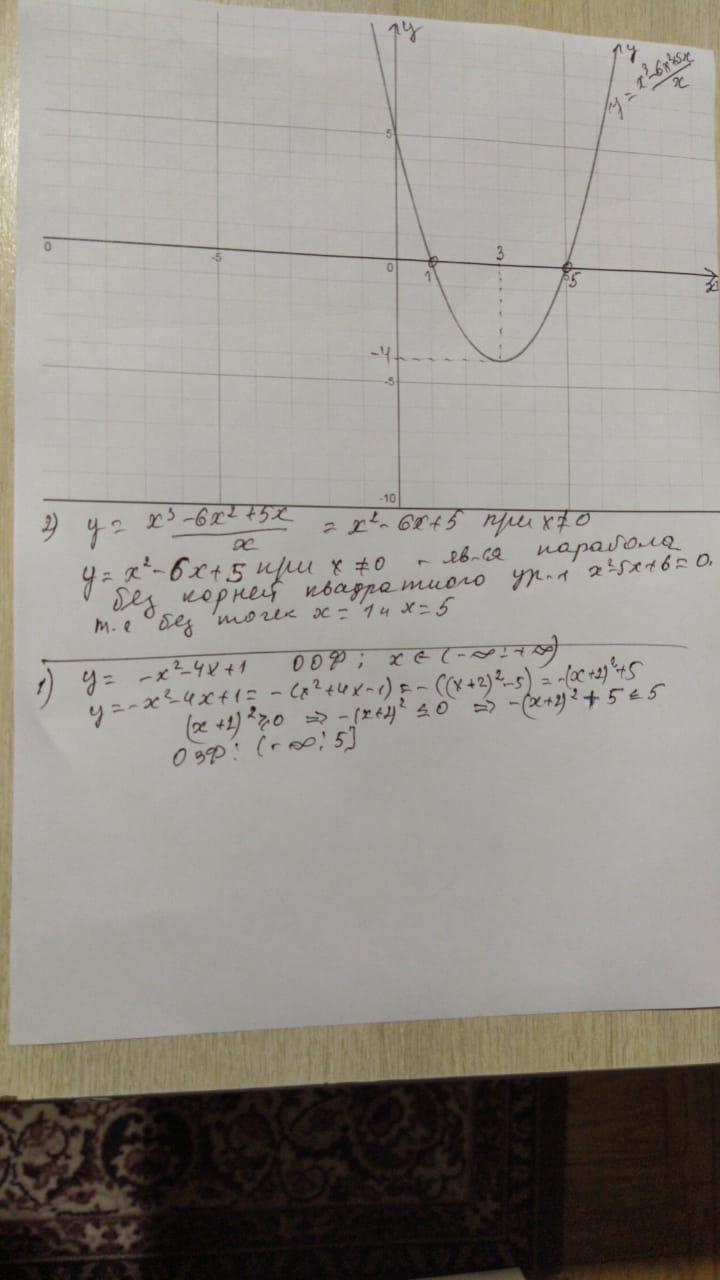 y
y
y = x³-6x²+5x / x
5
0
-5
0
1
3
5
x
-4
-5
-10
2) y = x³-6x²+5x / x = x²-6x+5 при x≠0
y = x²-6x+5 при x ≠0 - яв-ся парабола
без корней квадратного ур-я x²-5x+6=0.
т.е без точек x = 1 и x = 5
1) y = -x²-4x+1 ООФ: x ∈ (-∞; +∞)
y = -x²-4x+1 = -(x²+4x-1) = -((x+2)²-5) = -(x+2)²+5
(x+2)² ≥0 ⇒ -(x+2)² ≤ 0 ⇒ -(x+2)² + 5 ≤ 5
ОЗФ: (-∞; 5]